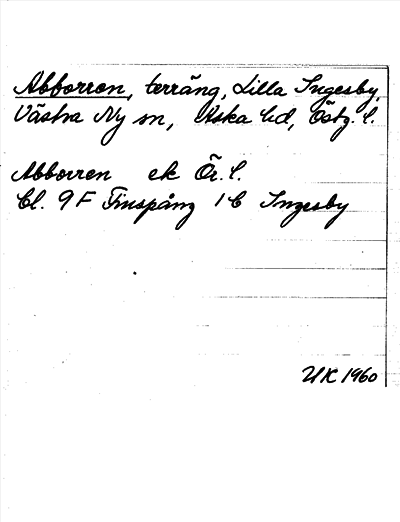 Abborren, terräng, Lilla Ingesby,
Västra Ny sn, Aska hd, Östg. l.
Abborren ek Ör. l.
Bl. 9F Finspång 1C Ingesby
UK 1960